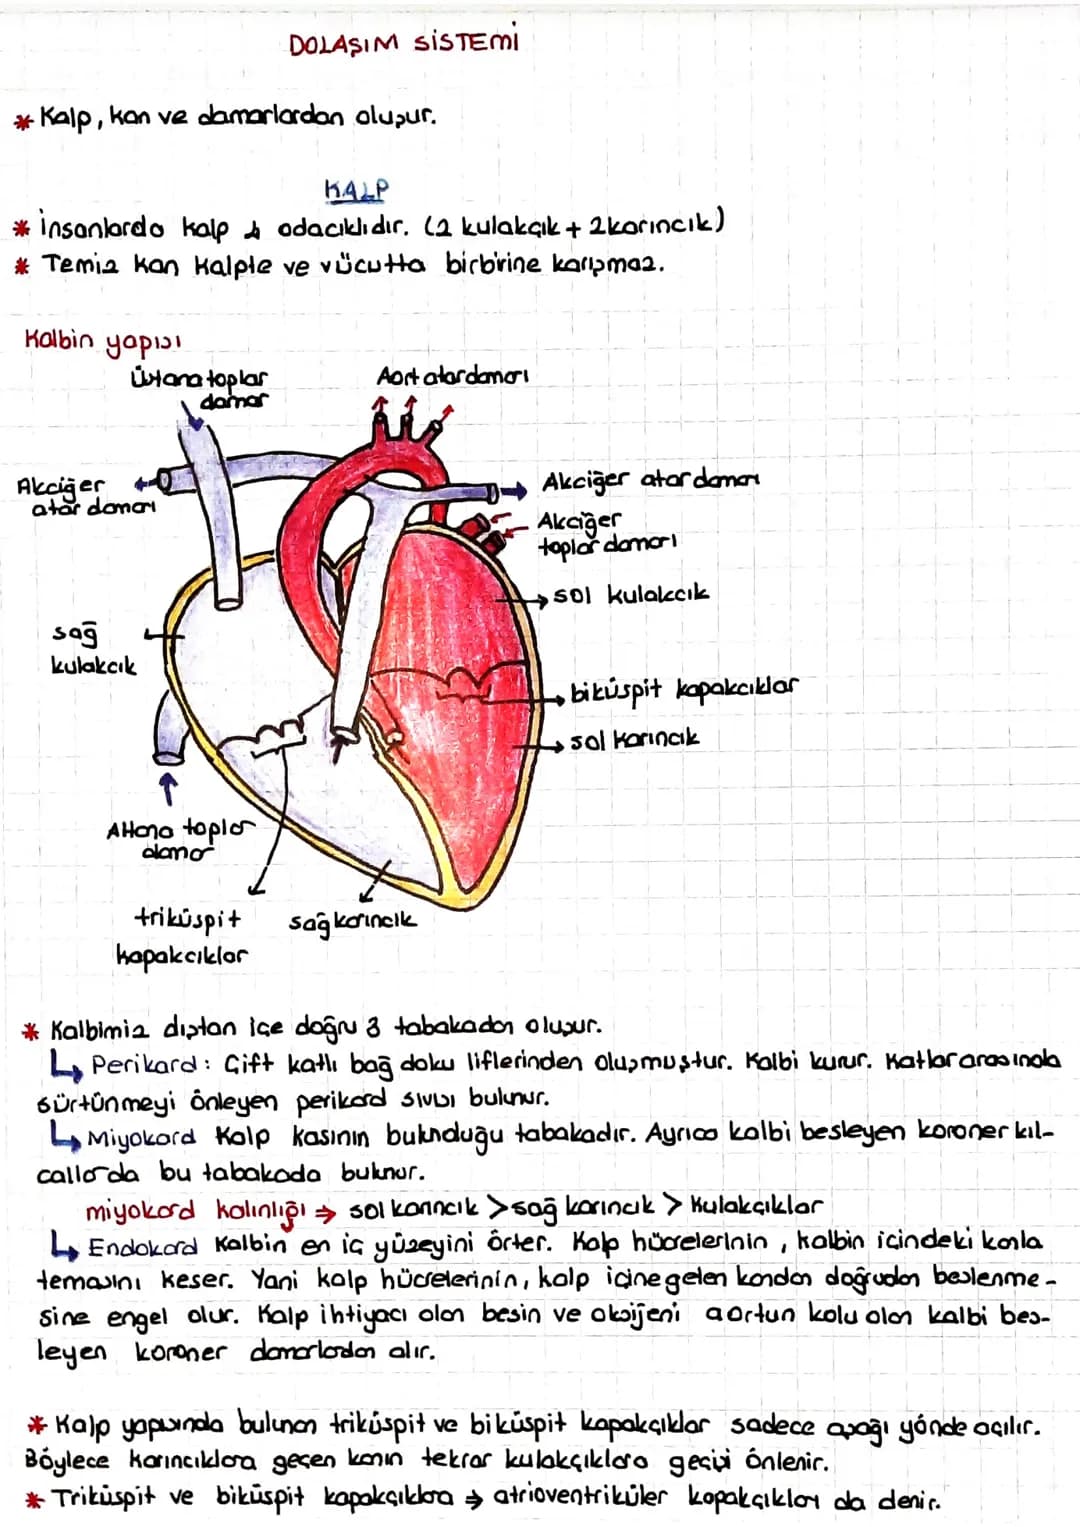 DOLAŞIM SİSTEMİ
* Kalp, kan ve damarlardan oluşur.
KALP
* İnsanlarda kalp 4 odacıklıdır. (2 kulakçık + 2 karıncık)
* Temiz kan kalple ve vücutta birbirine karışmaz.
Kalbin yapısı
Üst ana toplar
damar
Aort atardamarı
Akciğer
atar damarı
Akciğer atardamarı
Akciğer
toplar damarı
sol kulakcık
sağ
kulakcık
biküspit kapakcıklar
sol karıncık
Alt ana toplar
damar
triküspit
kapakcıklar
sağ karıncık
* Kalbimiz dıştan içe doğru 3 tabakadan oluşur.
↳ Perikard : Çift katlı bağ doku liflerinden oluşmuştur. Kalbi kurur. Katlar arasında
sürtünmeyi önleyen perikard sıvısı bulunur.
↳ Miyokard Kalp kasının bulunduğu tabakadır. Ayrıca kalbi besleyen koroner kıl-
callarda bu tabakada bulunur.
miyokard kalınlığı → sol karıncık > sağ karıncık > Kulakçıklar
↳ Endokard Kalbin en iç yüzeyini örter. Kalp hücrelerinin , kalbin içindeki kanla
temasını keser. Yani kalp hücrelerinin, kalp içine gelen kandan doğrudan beslenme-
sine engel olur. Kalp ihtiyacı olan besin ve oksijeni aortun kolu olan kalbi bes-
leyen koroner damarlardan alır.
* Kalp yapısında bulunan triküspit ve biküspit kapakçıklar sadece aşağı yönde açılır.
Böylece karıncıklara geçen kanın tekrar kulakçıklara geçişi önlenir.
* Triküspit ve biküspit kapakçıklara → atrioventriküler kapakçıklar da denir.